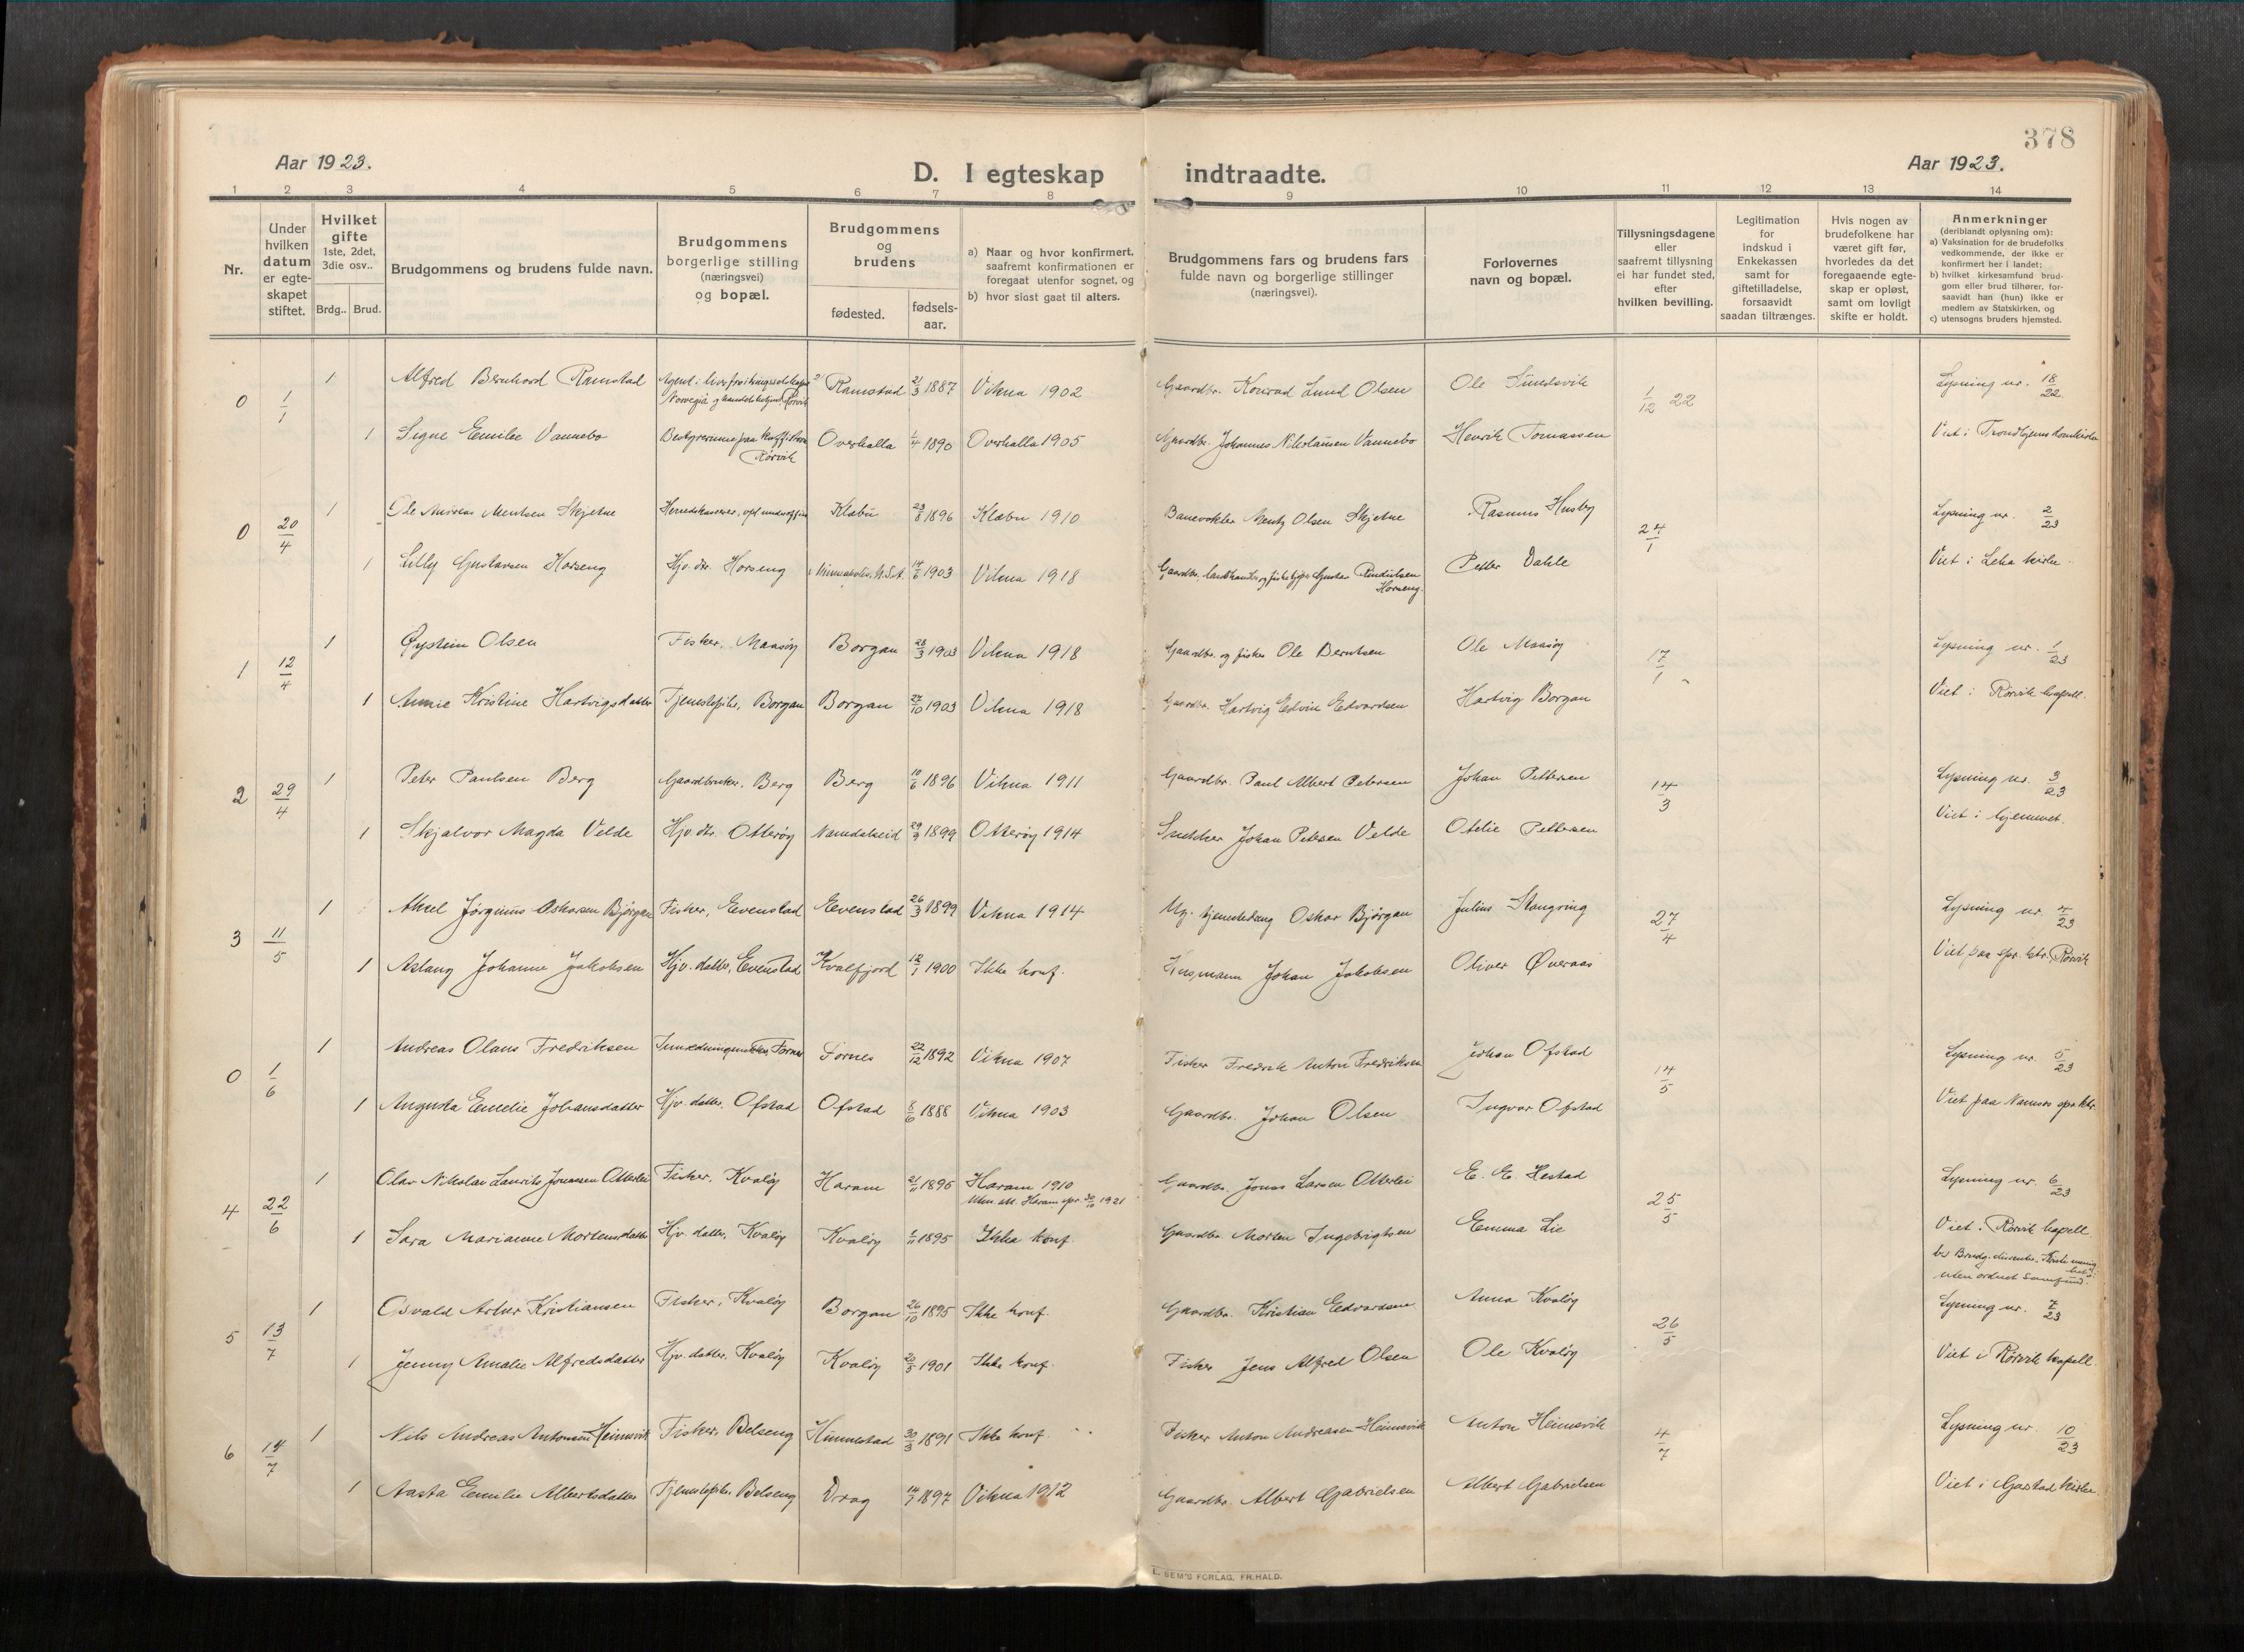 378
Aar 1923.
Aar 1923.
D. I egteskap indtraadte.
1 2 3 4 5 6 7 8 9 10 11 12 13 14
Nr.
Under
hvilken
datum
er egte-
skapet
stiftet.
Hvilket
gifte
1ste, 2det,
3die osv..
Brdg.. Brud.
Brudgommens og brudens fulde navn.
Brudgommens
borgerlige stilling
(næringsvei)
og bopæl.
Brudgommens
og
brudens
fødested.
fødsels-
aar.
a) Naar og hvor konfirmert,
saafremt konfirmationen er
foregaat utenfor sognet, og
b) hvor sidst gaat til alters.
Brudgommens fars og brudens fars
fulde navn og borgerlige stillinger
(næringsvei).
Forlovernes
navn og bopæl.
Tillysningsdagene
eller
saafremt tillysning
ei har fundet sted,
efter
hvilken bevilling.
Legitimation
for
indskud i
Enkekassen
samt for
giftetilladelse,
forsaavidt
saadan tiltrænges.
Hvis nogen av
brudefolkene har
været gift før,
hvorledes da det
foregaaende egte-
skap er opløst,
samt om lovligt
skifte er holdt.
Anmerkninger
(deriblandt oplysning om):
a) Vaksination for de brudefolks
vedkommende, der ikke er
konfirmert her i landet;
b) hvilket kirkesamfund brud-
gom eller brud tilhører, for-
saavidt han (hun) ikke er
medlem av Statskirken, og
c) utensogns bruders hjemsted.
0 1/1 1 Alfred Bernhard Ramstad Agent i livsforsikringsselskapet Norvegia og handelsbetjent, Rørvik Ramstad 21/3 1887 Vikna 1902 Gaardbr. Konrad Lund Olsen Ole Sundsvik 1/12 22 Lysning nr. 18/22.
1 Signe Emilie Vannebo Bestyrerinne paa kaffistova Rørvik Overhalla 1/4 1890 Overhalla 1905 Gaardbr. Johannes Nikolaisen Vannebo Henrik Tomassen Viet i Trondhjems Domkirke
0 20/4 1 Ole Andreas Mentsen Skjetne Herredskasserer, Klæbu 23/8 1896 Klæbu 1910 Banevokter Mentz Olsen Skjetne Rasmus Husby 24/1 Lysning nr. 2/23
1 Lilly Gustavsen Horseng Hjv. dtr. Horseng Minneapolis, N.S.A. 14/6 1903 Vikna 1918 Gaardbr. landhandler og Gustav Horseng. Petter Dahle Viet i Leka kirke.
1 12/4 1 Øystein Olsen Fisker, Maasøy Borgan 28/3 1903 Vikna 1918 Gaardbr. og fisker Ole Berntsen Ole Maasøy 17/1 Lysning nr. 1/23
1 Annie Kristine Hartvigsdatter Tjenestepike, Borgan Borgan 27/10 1903 Vikna 1918 Gaardbr. Hartvig Edvin Edvardsen Hartvig Borgan Viet i Rørvik kapell.
2 29/4 1 Peter Paulsen Berg Gaardbruker, Berg Berg 10/6 1896 Vikna 1911 Gaardbr. Paul Albert Petersen Johan Pettersen 14/3 Lysning nr. 3/23
1 Skjalvor Magda Velde Hjv. dtr. Otterøy Namdalseid 29/9 1899 Otterøy 1914 Snekker Johan Petersen Velde Otelie Pettersen Viet i hjemmet.
3 11/5 1 Aksel Jørginus Oskarsen Bjørgan Fisker, Evenstad Evenstad 26/3 1899 Vikna 1914 Ug. tjenestedreng Oskar Bjørgan Julius Stangring 27/4 Lysning nr. 4/23
1 Aslaug Johanne Jakobsen Hjv. datter, Evenstad Kvalfjord 12/1 1900 Ikke konf. Husmann Johan Jakobsen Oliver Øveraas Viet paa spr. ktr. Rørvik
0 1/6 1 Andreas Olaus Fredriksen Fornes Fornes 22/12 1892 Vikna 1907 Fisker Fredrik Anton Fredriksen Johan Ofstad 14/5 Lysning nr. 5/23
1 Augusta Emelie Johansdatter Hjv. datter, Ofstad Ofstad 8/6 1888 Vikna 1903 Gaardbr. Johan Olsen Ingvar Ofstad Viet paa Namsos spr ktr.
4 22/6 1 Olav Nikolai Laurits Jonassen Otterlei Fisker, Kvaløy Haram 21/11 1895 Haram 1910 Utm. att. Haram spr. 30/10 1921 Gaardbr. Jonas Larsen Otterlei E. E. Hestad 25/5 Lysning nr. 6/23
1 Sara Marianne Mortensdatter Hjv. datter, Kvaløy Kvaløy 1/11 1895 Ikke konf. Gaardbr. Morten Ingebrigtsen Emma Lie Viet i Rørvik kapell
b) Brudg. dissenter. uten ordnet Samfund.
5 13/7 1 Osvald Artur Kristiansen Fisker, Kvaløy Borgan 26/10 1895 Ikke konf. Gaardbr. Kristian Edvardsen Anna Kvaløy 26/5 Lysning nr. 7/23
1 Jenny Amalie Alfredsdatter Hjv. datter, Kvaløy Kvaløy 20/5 1901 Ikke konf. Fisker Jens Alfred Olsen Ole Kvaløy Viet i Rørvik kapell.
6 14/7 1 Nils Andreas Antonsen Heimsvik Fisker, Belseng Hunnestad 30/3 1891 Ikke konf. Fisker Anton Andreasen Heimsvik Anton Heimsvik 4/7 Lysning nr. 10/23
1 Aasta Emilie Albertsdatter Tjenestepike, Belseng Drag 14/7 1897 Vikna 1912 Gaardbr. Albert Gabrielsen Albert Gabrielsen Viet i Garstad kirke.
E. SEM'S FORLAG, FR.HALD.